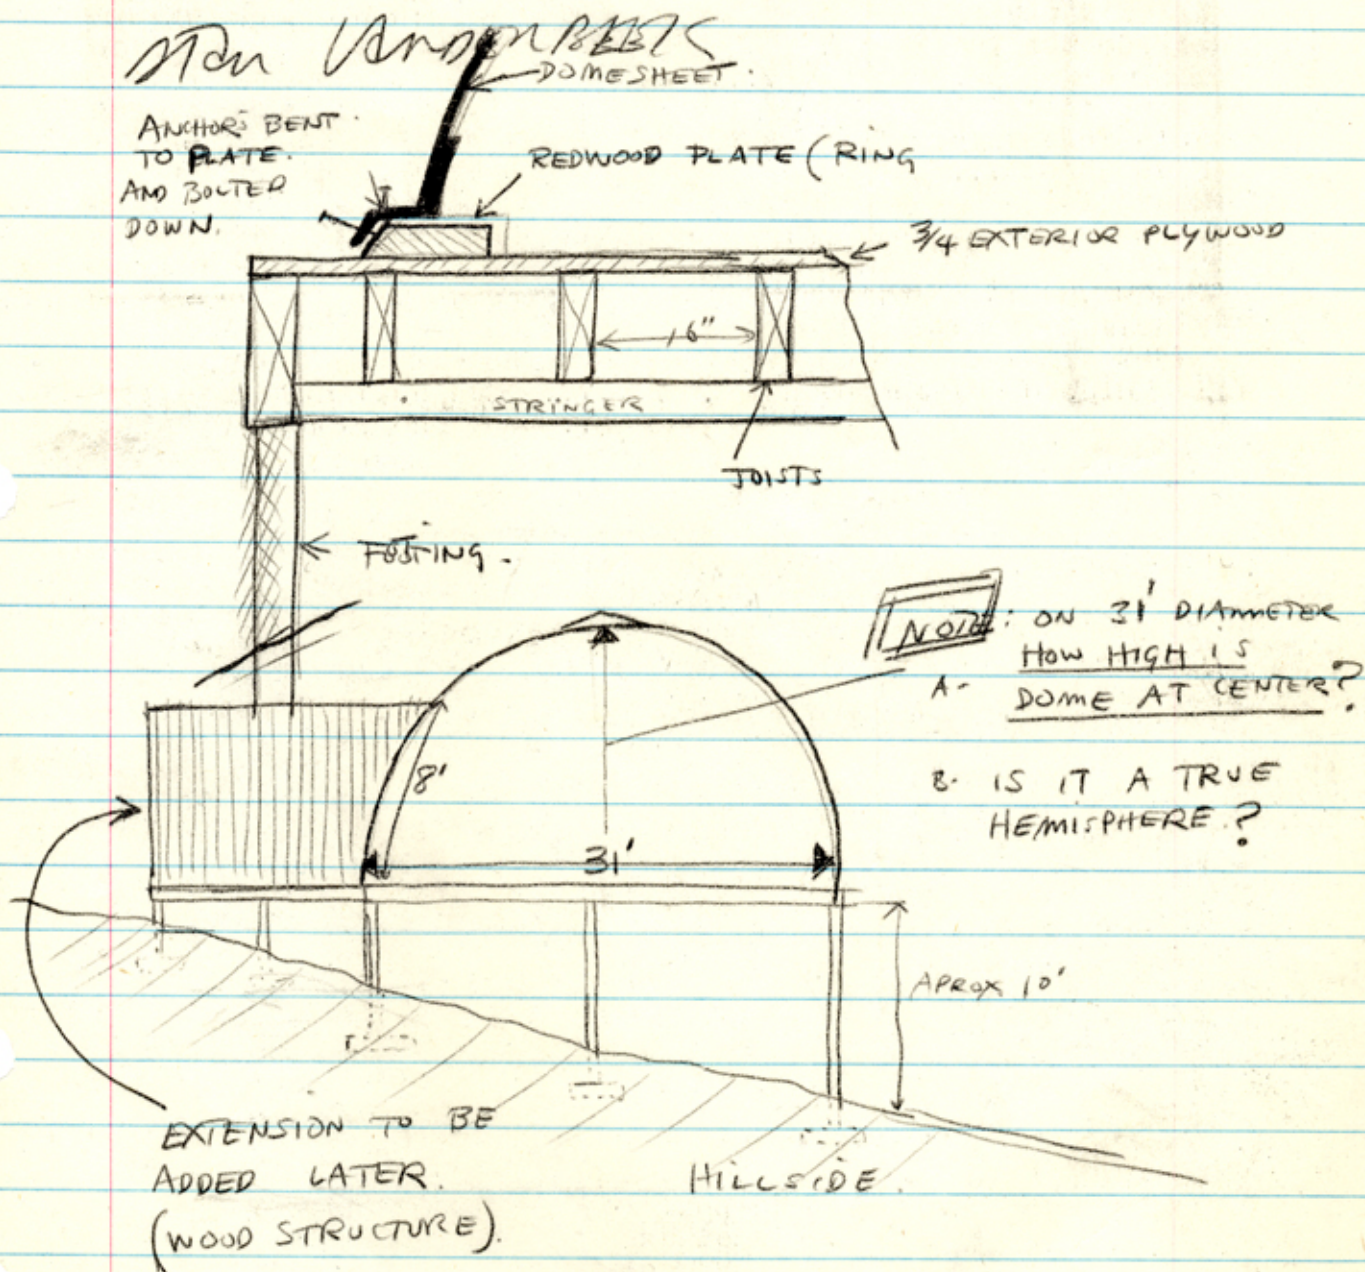 Stan VANDERBEEK
DOMESHEET.
ANCHORS BENT
TO PLATE.
AND BOLTED
DOWN.
REDWOOD PLATE (RING
3/4 EXTERIOR PLYWOOD
16"
STRINGER
JOISTS
FOOTING.
NOTE: ON 31' DIAMETER
A- HOW HIGH IS
DOME AT CENTER?
B- IS IT A TRUE
HEMISPHERE.?
8'
31'
APROX 10'
EXTENSION TO BE
ADDED LATER.
(WOOD STRUCTURE).
HILLSIDE.